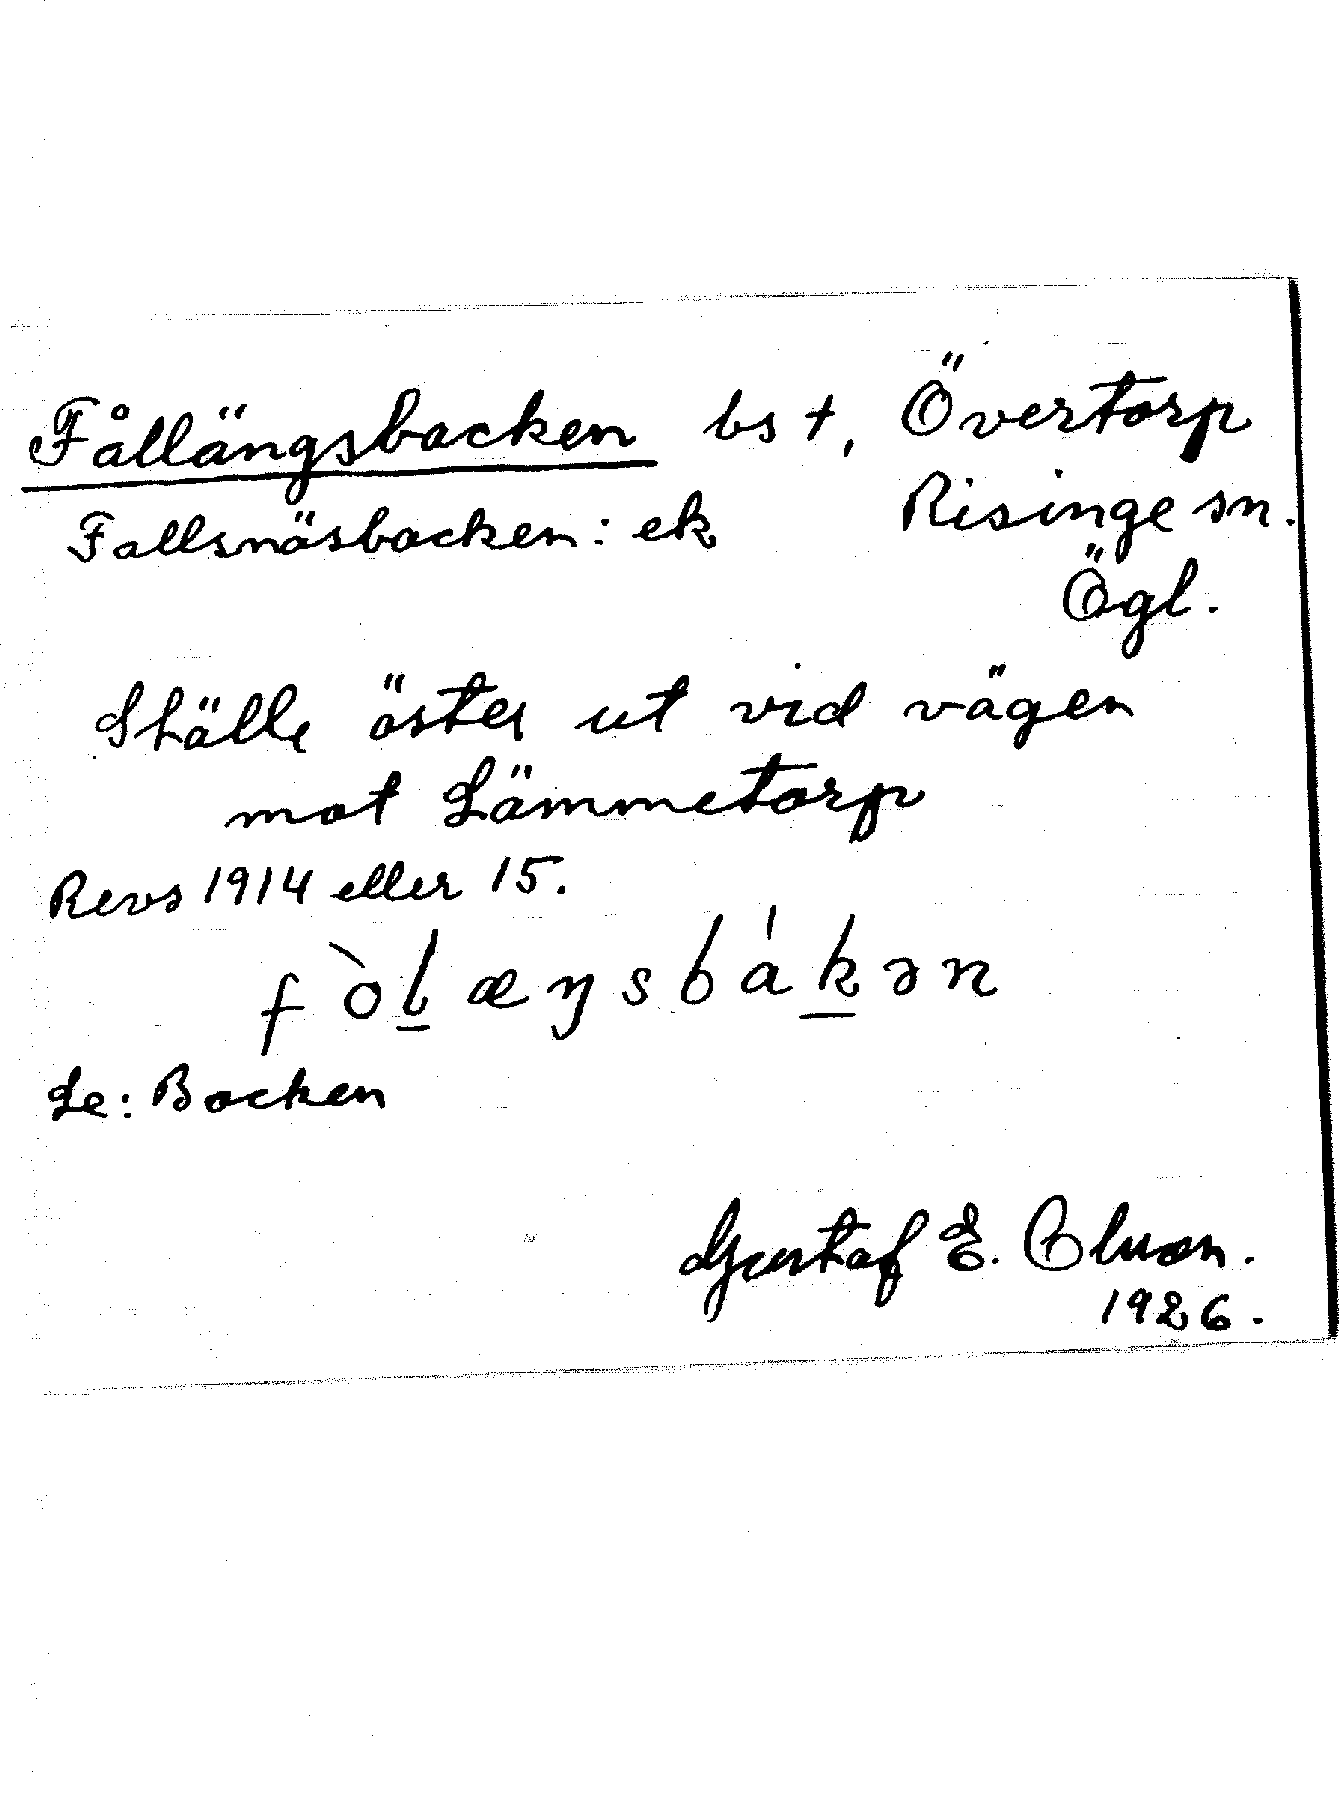 Fållängsbacken bs †, Övertorp
Fallsnäsbacken: ek Risinge sn.
Ögl.
Ställe öster ut vid vägen
mot Lämmetorp
Revs 1914 eller 15.
fòl̲æŋsbák̲ən
Le: Backen
Gustaf E.
1926.